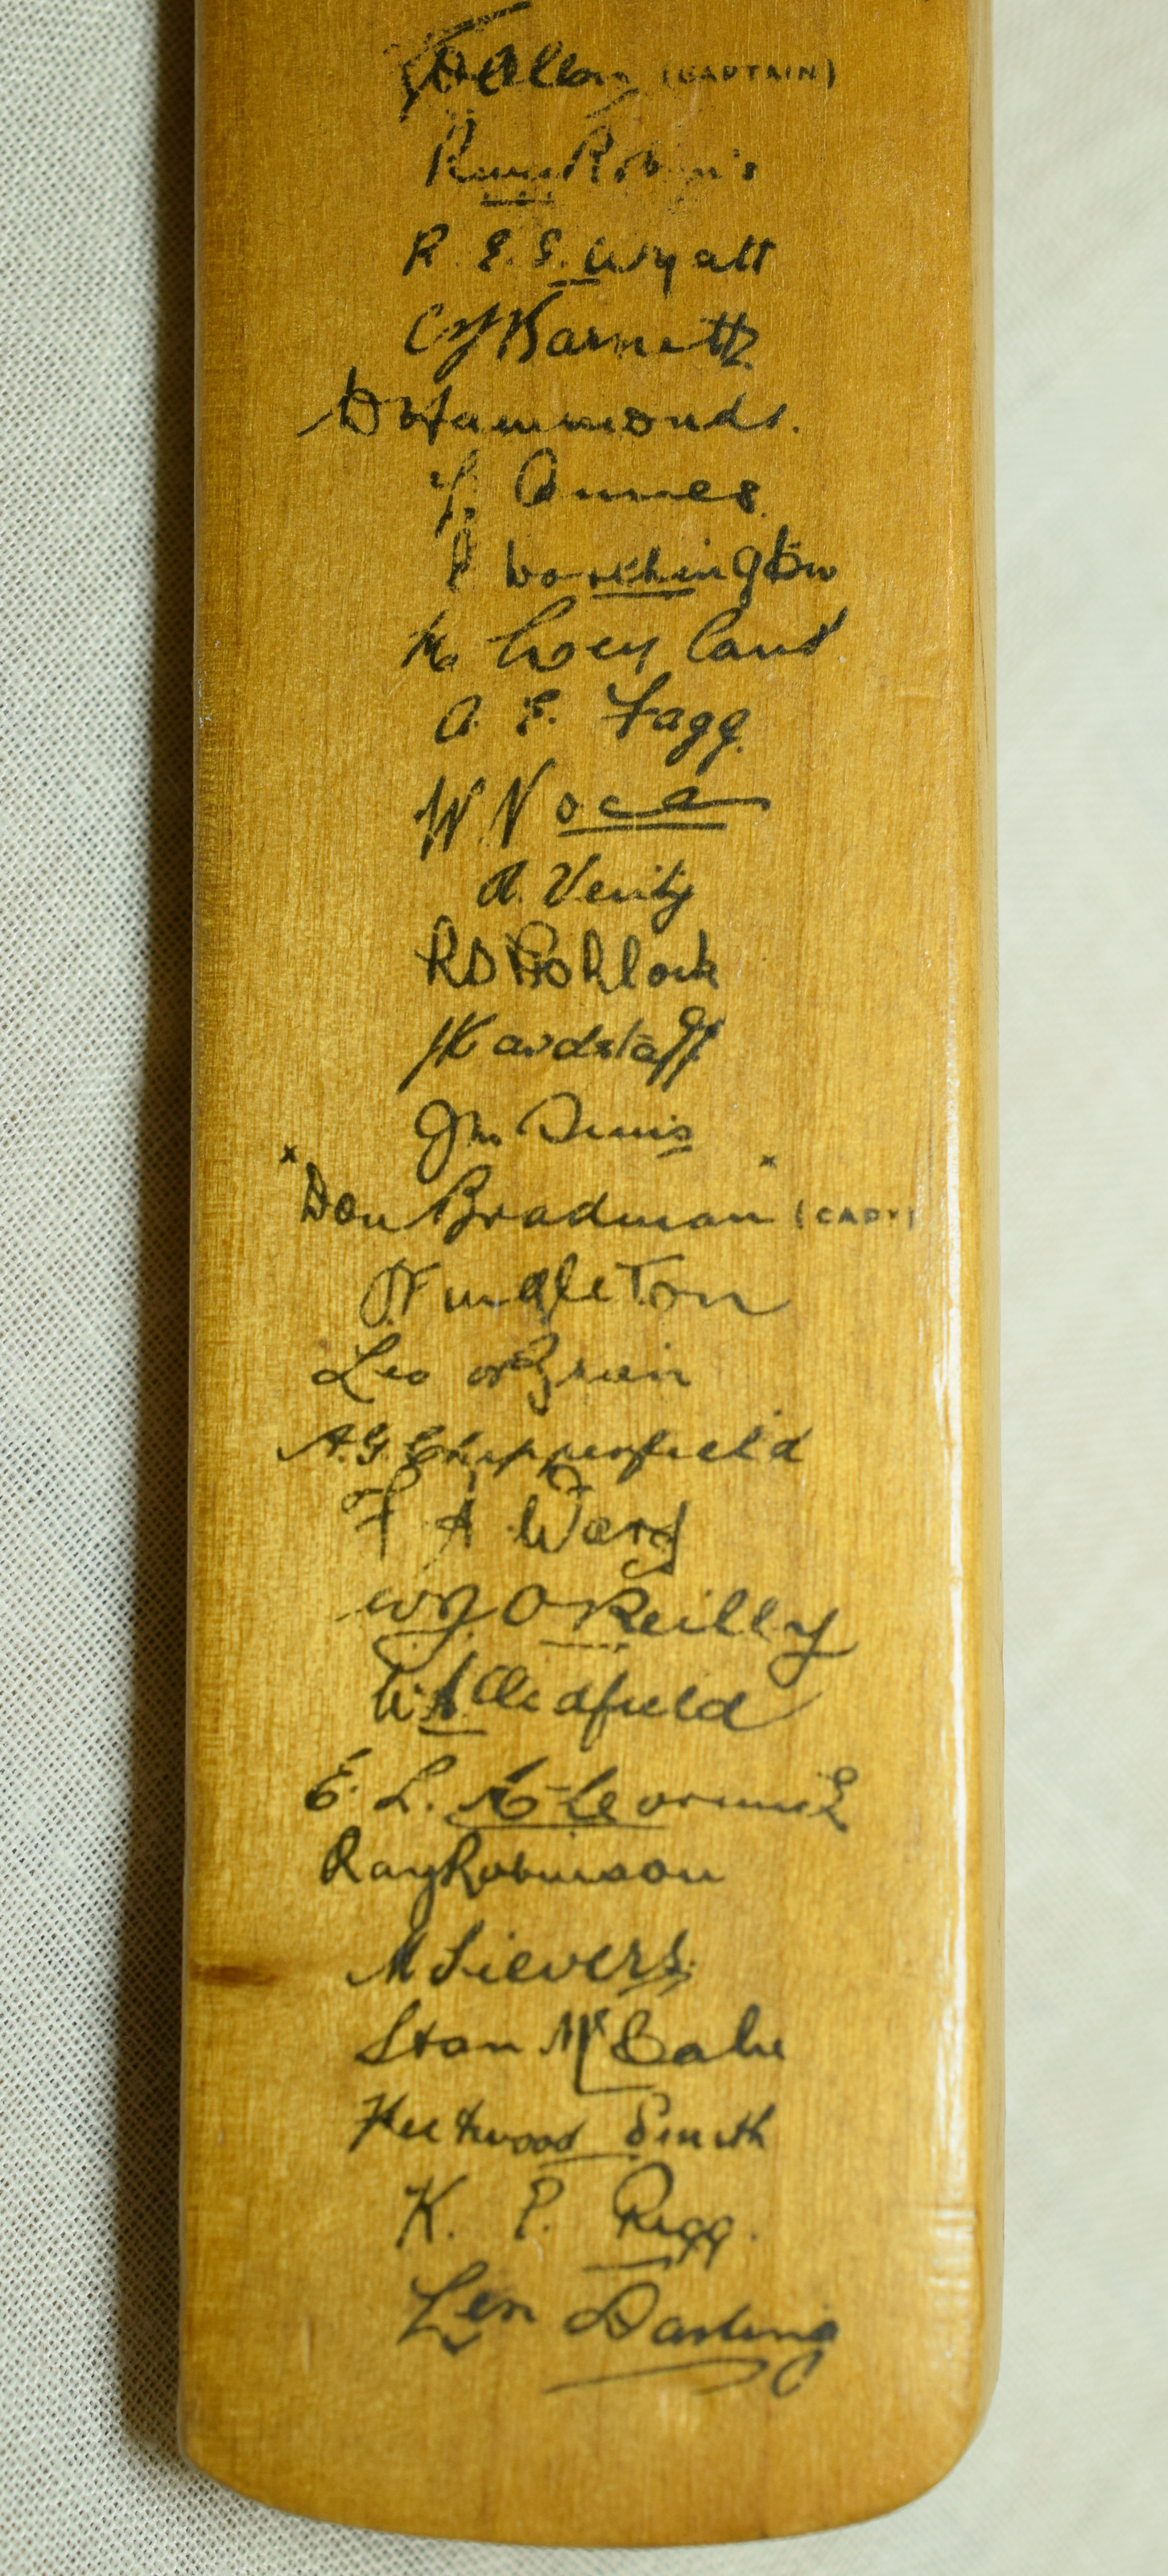 G O Allen (CAPTAIN)
Robins
R. E. S. Wyatt
C J Barnett
D Hammonds.
L Ames.
Worthington
M Leyland
A. E. Fagg.
W Voce
H. Verity
J Hardstaff
Jm Sims
"Don Bradman" (CAPT)
J Fingleton
Leo O'Brien
A.G. Chipperfield
F A Ward
W J. O'Reilly
W A Oldfield
E. L. McCormick
Ray Robinson
M Sievers.
Stan McCabe
Fleetwood Smith
K. E. Rigg.
Len Darling